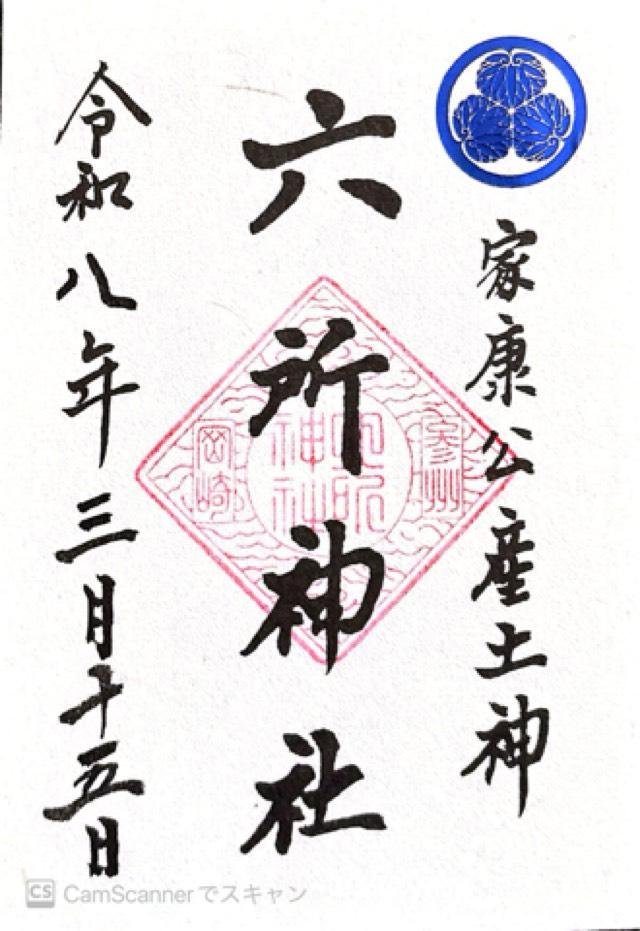 家康公産土神
六所神社
参州
六所神社
岡崎
令和八年三月十五日
CS CamScannerでスキャン